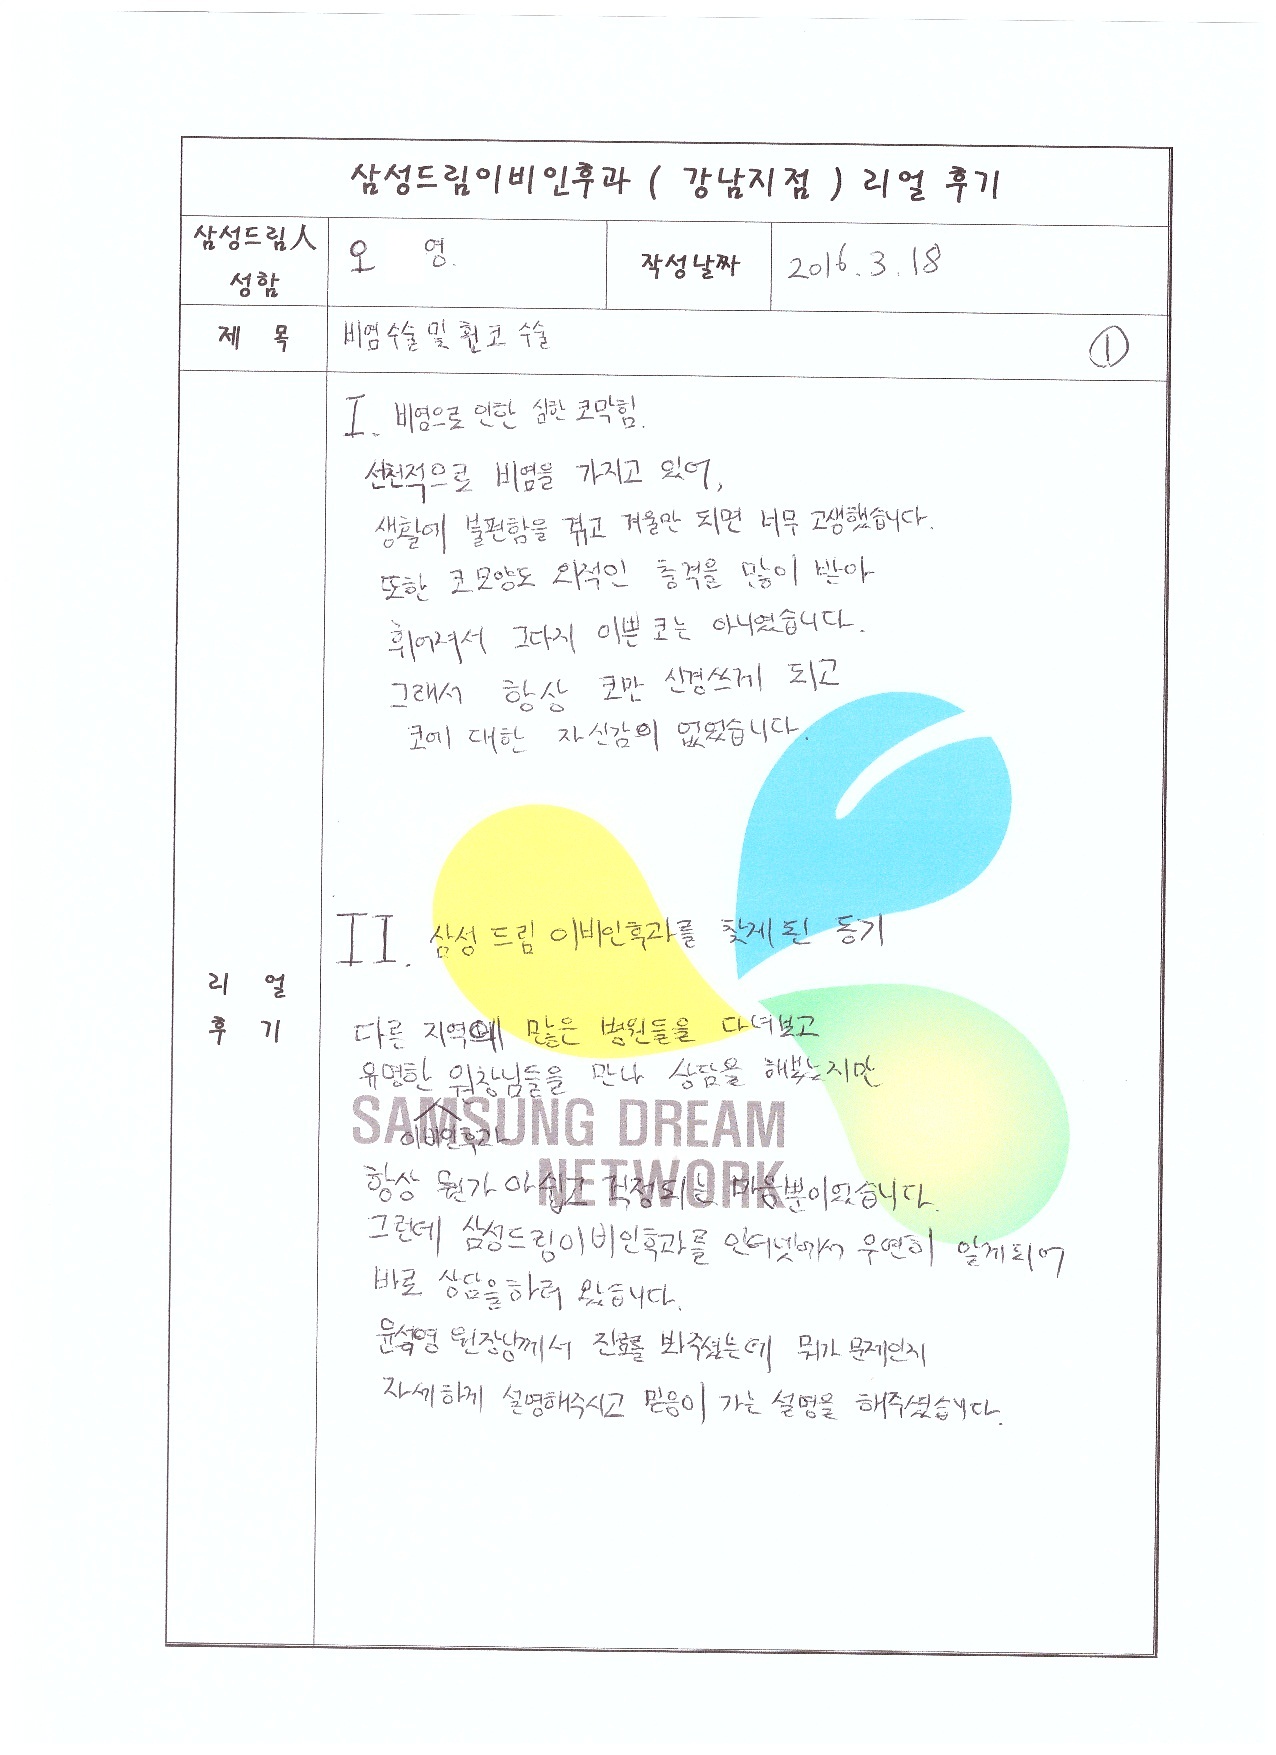 삼성드림이비인후과 ( 강남지점 ) 리얼 후기
삼성드림人 성함
오 영.
작성날짜
2016.3.18
제 목
비염수술 및 휜코 수술
①
리 얼
후 기
I. 비염으로 인한 심한 코막힘.
선천적으로 비염을 가지고 있어,
생활에 불편함을 겪고 겨울만 되면 너무 고생했습니다.
또한 코모양도 외적인 충격을 많이 받아
휘어져서 그다지 이쁜 코는 아니였습니다.
그래서 항상 코만 신경쓰게 되고
코에 대한 자신감이 없었습니다.
II. 삼성 드림 이비인후과를 찾게 된 동기
다른 지역에 많은 병원들을 다녀보고
유명한 원장님들을 만나 상담을 해봤는지만
이비인후과
SAMSUNG DREAM
NETWORK
항상 뭔가 아쉽고 걱정되는 마음뿐이었습니다.
그런데 삼성드림이비인후과를 인터넷에서 우연히 알게되어
바로 상담을하러 왔습니다.
윤석영 원장님께서 진료를 봐주셨는데 뭐가 문제인지
자세하게 설명해주시고 믿음이 가는 설명을 해주셨습니다.